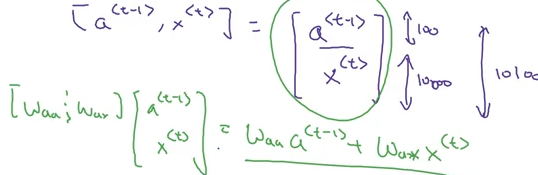 [a^{<t-1>}, x^{<t>}] = [a^{<t-1>} / x^{<t>}] ↕100 ↕10,000 ↕10100
[Waa ; Wax] [a^{<t-1>} / x^{<t>}] = Waa a^{<t-1>} + Wax x^{<t>}